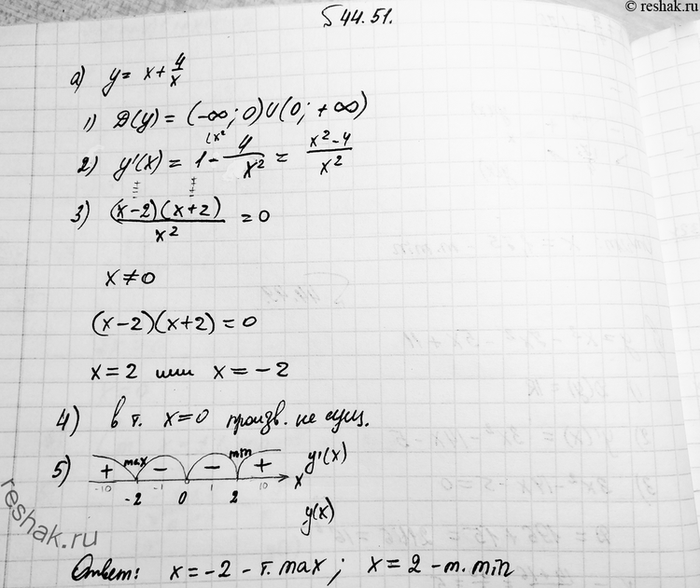 © reshak.ru
§44.51.
а) y = x + 4/x
1) D(y) = (-∞; 0) ∪ (0; +∞)
2) y'(x) = 1 - 4/x² = (x²-4)/x²
3) (x-2)(x+2)/x² = 0
x ≠ 0
(x-2)(x+2) = 0
x = 2 или x = -2
4) в т. x=0 произв. не сущ.
5) + max - - min + y'(x)
-10 -2 -1 0 1 2 10 x
y(x)
reshak.ru
Ответ: x = -2 - т. max; x = 2 - т. min